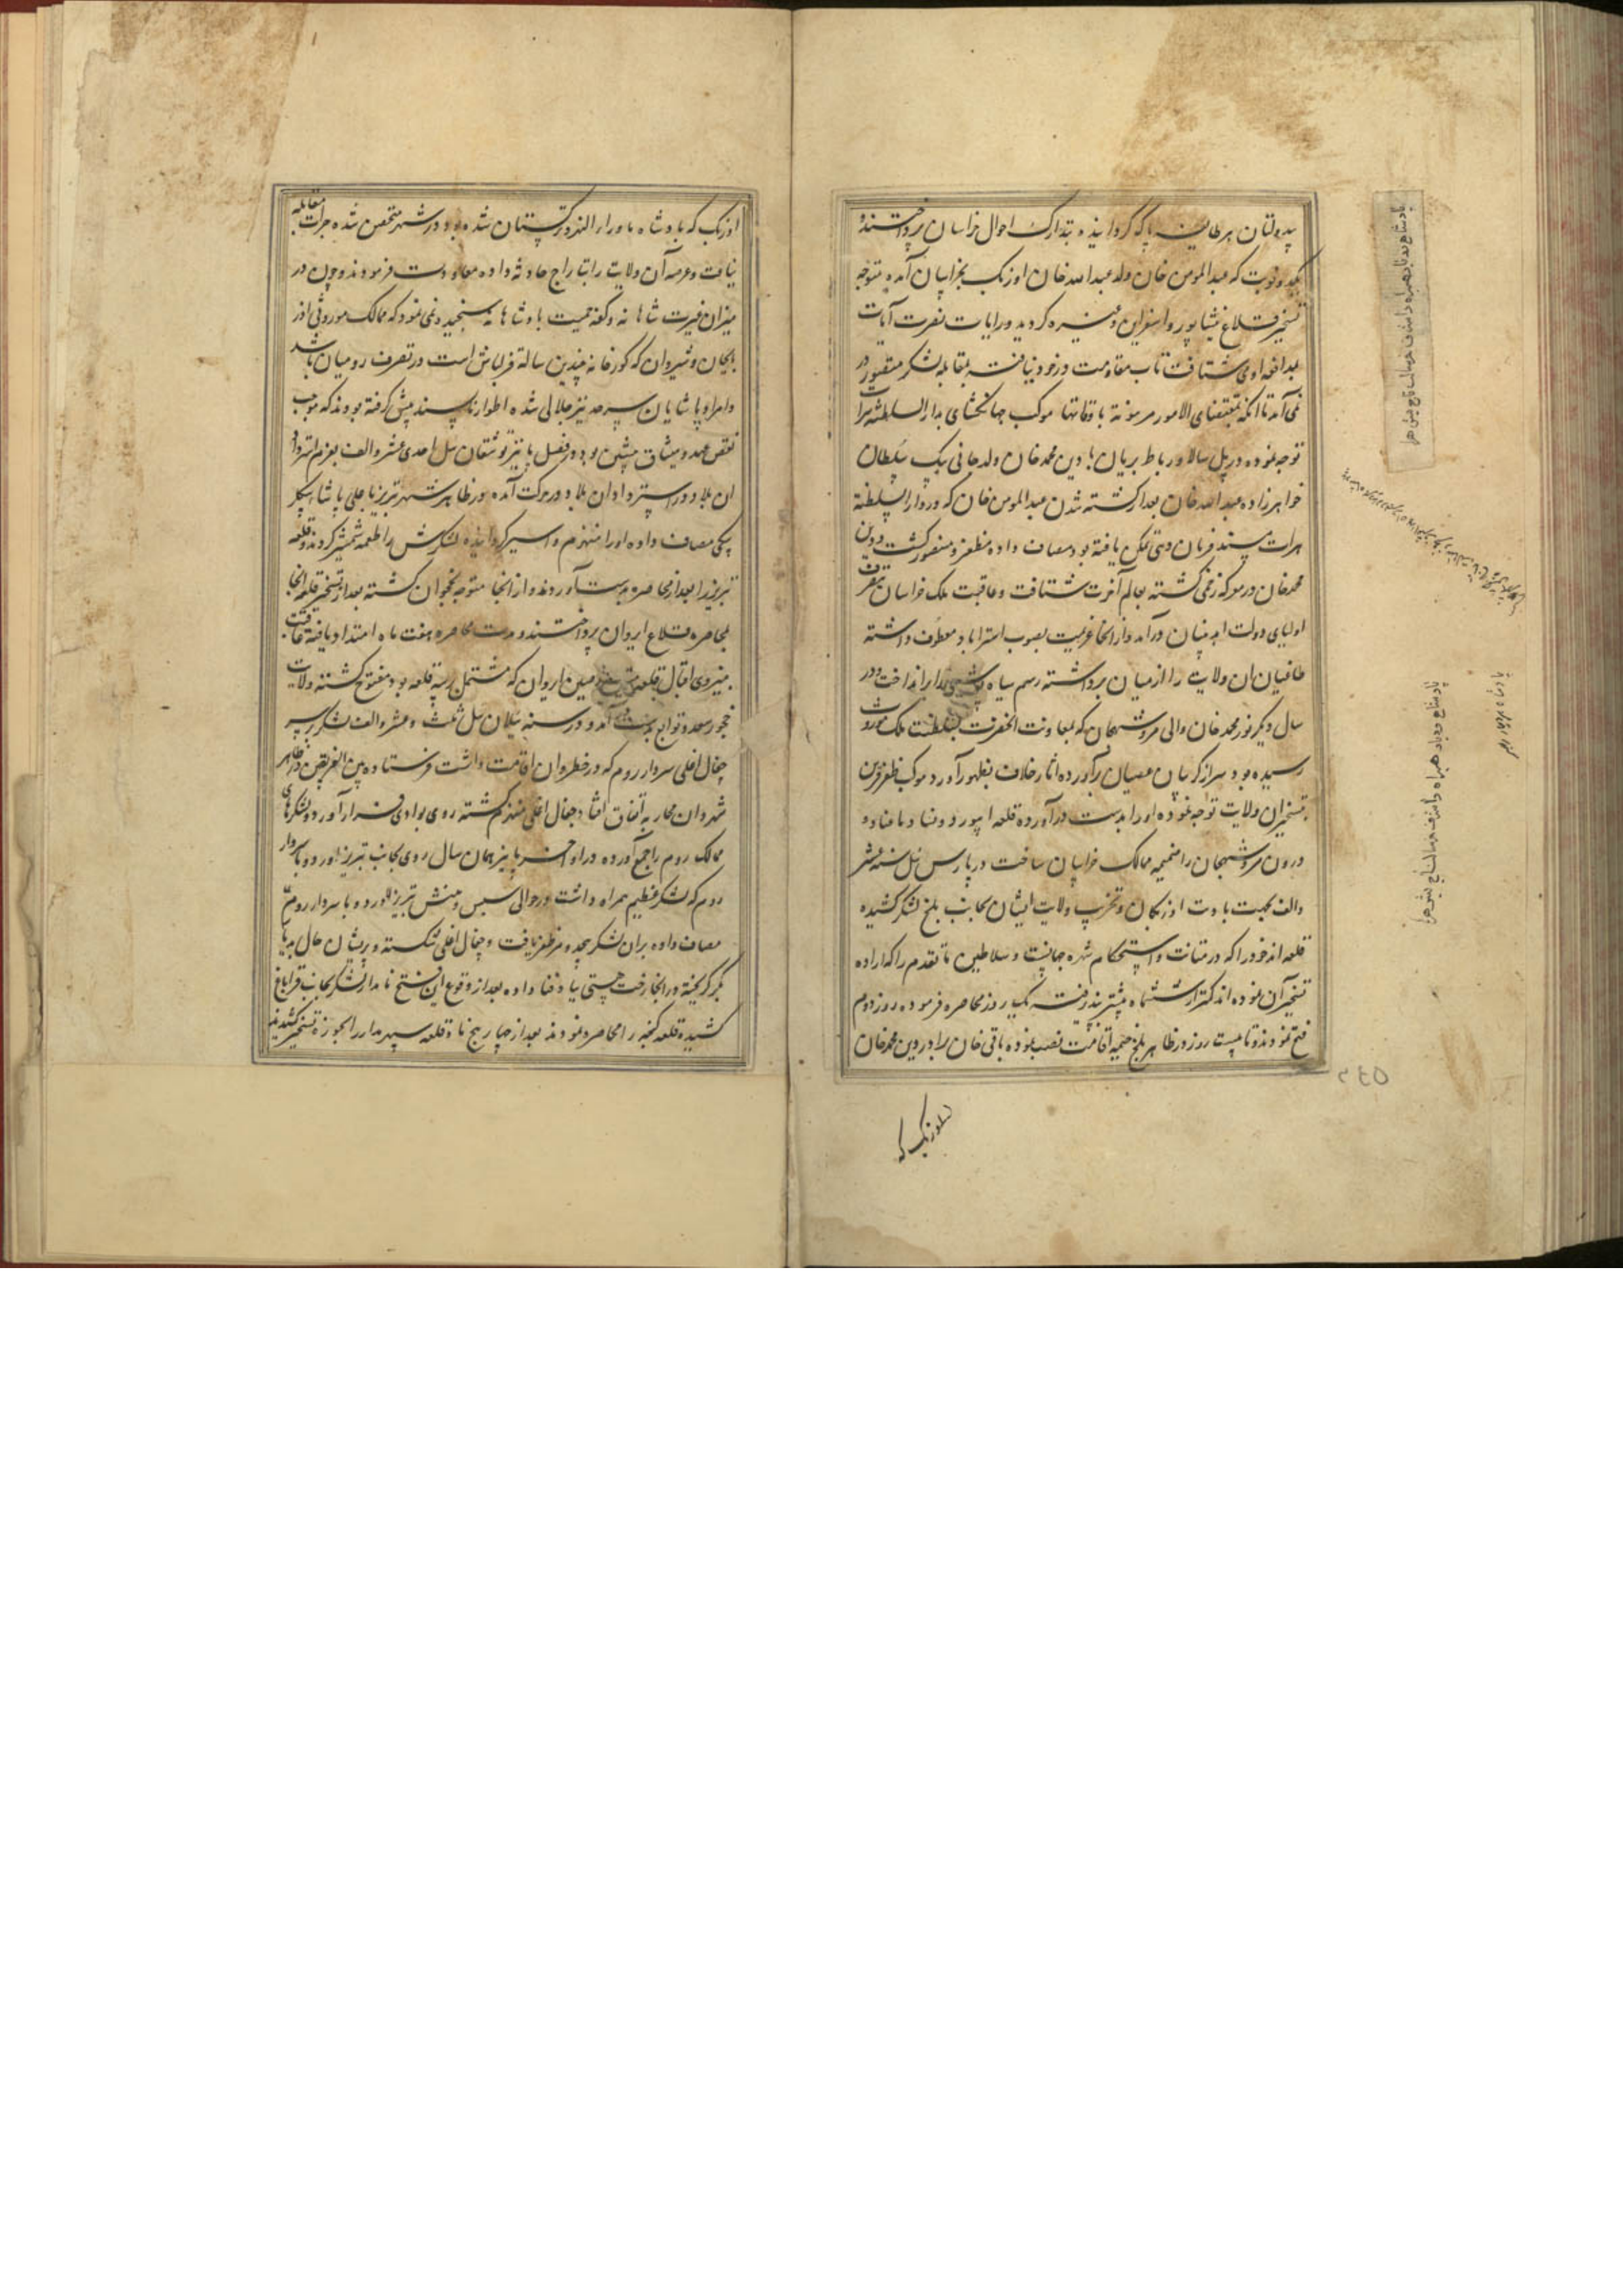 بدولتان هر طایفه پاک گردانیده بتدارک احوال خراسان پرداختند و
یکدو نوبت که عبدالمومن خان ولد عبدالله خان اوزبک بخراسان آمده متوجه
تسخیر قلاع نیشاپور و اسفراین و غیره گردید و رایات نصرت آیات
بمدافعه او می شتافت تاب مقاومت در خود نیافته بمقابله لشکر منصور در
نمی آمد تا آنکه بمقتضای الامور مرهونة باوقاتها موکب جهانگشای بدارالسلطنه هرات
توجه نموده در پل سالار و رباط بریان با دین محمد خان ولد جانی بیک سلطان
خواهرزاده عبدالله خان بعد از کشته شدن عبدالمومن خان که در دارالسلطنة
هرات مسند فرمان دهی تمکن یافته بود مصاف داده مظفر و منصور گشت و دین
محمد خان در معرکه زخمی گشته بعالم آخرت شتافت و عاقبت ملک خراسان بتصرف
اولیای دولت ابد بنیان درآمد و از آنجا عزیمت بصوب استراباد معطوف داشته
طاغیان ان ولایت را از میان برداشته رسم سیاه پوشی برانداخت و در
سال دیگر نور محمد خان والی مرو شهجان که بمعاونت آنحضرت بسلطنت ملک موروث
رسیده بود سر از گریبان عصیان برآورده اثار خلاف بظهور آورد موکب ظفر قرین
بتسخیر ان ولایت توجه نموده او را بدست درآورده قلعه ابیورد و نسا و باغباده
و درون مرو شهجان را ضمیمه ممالک خراسان ساخت در پارس ئیل سنه عشر
والف بجهت اوزبکان و تخریب ولایت ایشان بجانب بلخ لشکر کشیده
قلعه اندخود را که در متانت و استحکام شهره جهانست و سلاطین ما تقدم را که اراده
تسخیر آن نموده اند کمتر از ششماه میسر نرفته یک روز محاصره فرموده روز دوم
فتح نمودند و تا بیست روز در ظاهر بلخ خیمه اقامت نصب نموده باقی خان برادر دین محمد خان
اوزبک که
اوزبک که پادشاه ماوراءالنهر و ترکستان شده بود در شهر متحصن شده جرات مقابله
نیافت و عرصه آن ولایت را بتاراج حادثه داده معاودت فرمودند و چون در
میزان غیرت شاهانه و کفه حمیت پادشاهانه سنجیده نمی نمود که ممالک موروثی آذر
بایجان و شیروان که گورخانه چندین ساله قزلباش است در تصرف رومیان باشد
و امرا و پاشایان سرحد نیز جلالی شده اطوار ناپسند پیش گرفته بودند که موجب
نقض عهد و میثاق پیشین بود در فصل پاییز توشقان ئیل احدی عشر والف بعزم استرداد
ان بلاد در حرکت آمده در ظاهر شهر تبریز با علی پاشا بیگلر
بیگی مصاف داده او را منهزم و اسیر گردانیده لشکرش را طعمه شمشیر کردند و قلعه
تبریز را بعد از محاصره بدست آوردند و از آنجا متوجه نخجوان گشته بعد از تسخیر قلعه آنجا
بمحاصره قلاع ایروان پرداختند و مدت محاصره هفت ماه امتداد یافته عاقبت
بنیروی اقبال قلعه ایروان که مشتمل بر سه قلعه بود مفتوح گشته ولایت
چخور سعد و توابع بدست آمد و در سنه ئیلان ئیل ثلث و عشر والف لشکر بر سر
چغال اغلی سردار روم که در خطه وان اقامت داشت فرستاده بین الفریقین در ظاهر
شهر وان محاربه اتفاق افتاد چغال اغلی منهزم گشته روی بوادی فرار آورد و لشکرهای
ممالک روم را جمع آورده در اواخر پاییز همان سال روی بجانب تبریز آورد و با سردار
روم که لشکر عظیم همراه داشت در حوالی سیس و شنب تبریز آورده با سردار روم
مصاف داده بران لشکر بیحد و مر ظفر یافت و چغال اغلی شکسته و پریشان حال بدیار
بکر گریخته در آنجا رخت هستی بباد فنا داده بعد از وقوع این فتح نامدار لشکر بجانب قراباغ
کشیده قلعه گنجه را محاصره نمودند بعد از چهار پنج ماه قلعه سپهر مدار را بحوزه تسخیر کشیدند